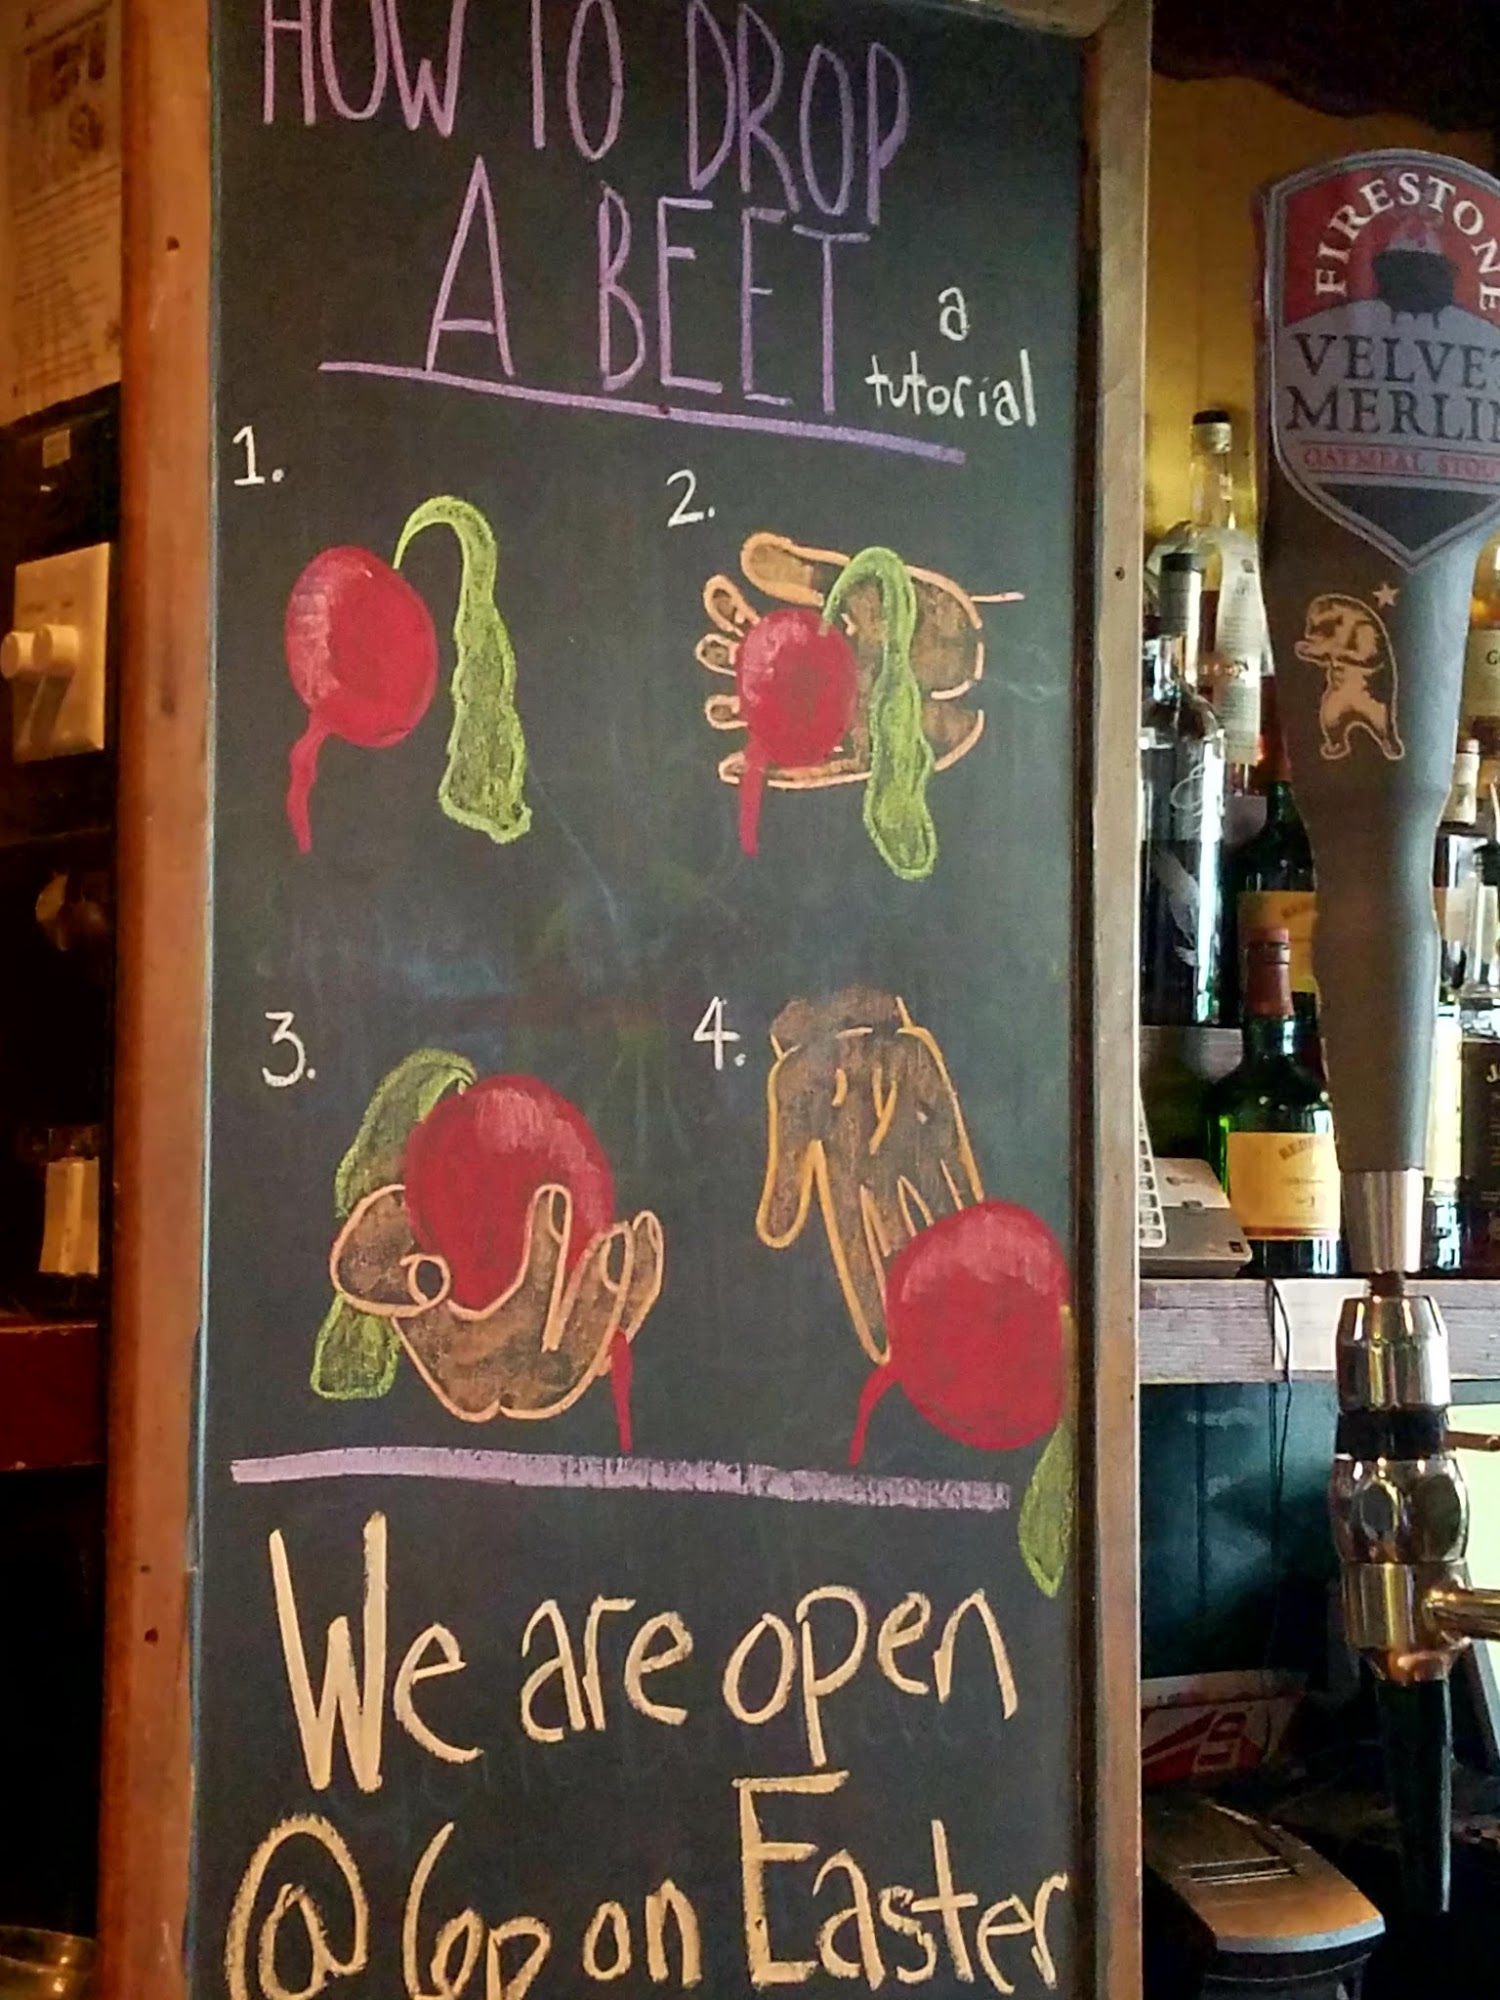 HOW TO DROP
A BEET
a
tutorial
1.
2.
3.
4.
We are open
@ 6p on Easter
FIRESTONE
VELVET
MERLIN
OATMEAL STOUT